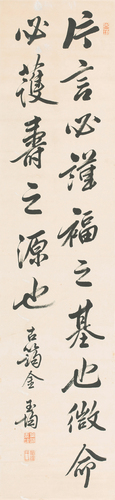 片言必謹福之基也微命
必護壽之源也
古筠金玉均